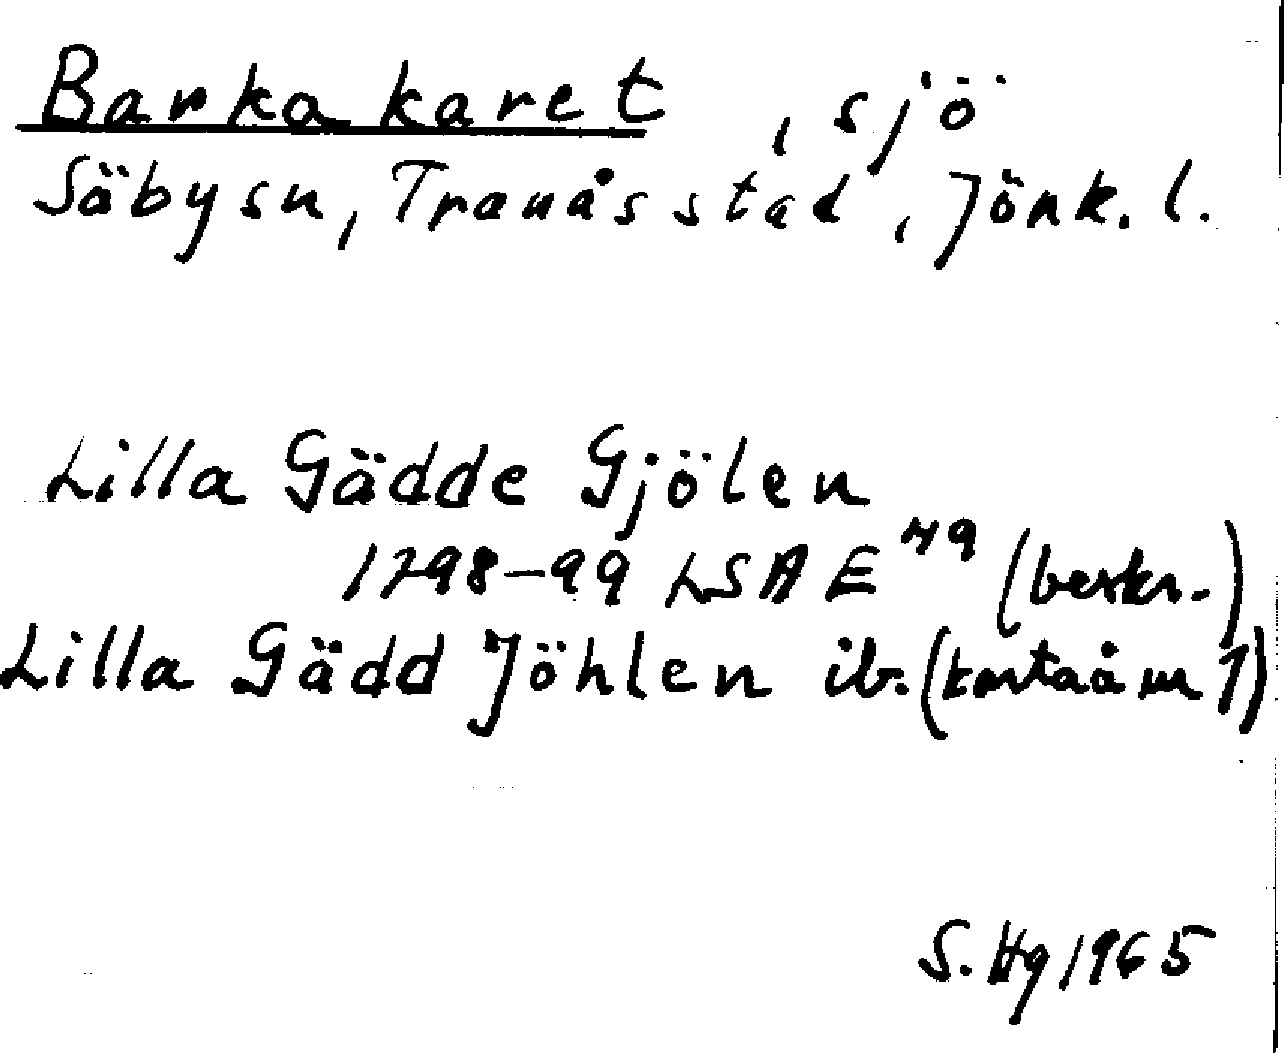 Barkakaret, sjö
Säby sn, Tranås stad, Jönk. l.
Lilla Gädde Gjölen
1798-99 LSA E 49 (beskr.)
Lilla Gädd Jöhlen ib. (karta å nr 1)
S. Hg 1965